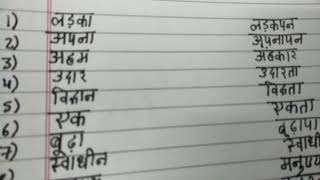 1) लड़का लड़कपन
2) अपना अपनापन
3) अहम अहकार
4) उदार उदारता
5) विद्वान विद्वता
6) एक एकता
7) बूढ़ा बुढ़ापा
स्वाधीन स्वाधी